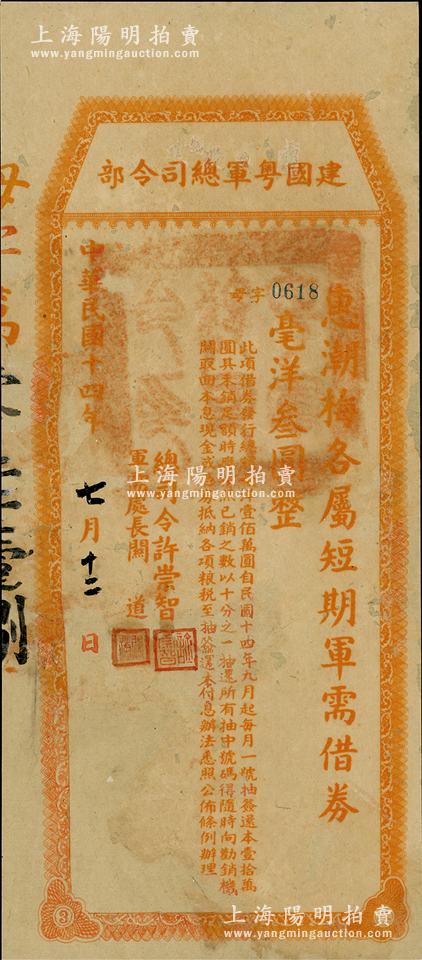 上海陽明拍賣
www.yangmingauction.com
建國粤軍總司令部
惠潮梅各屬短期軍需借券
字 0618 号
毫洋叁圓整
此項借券發行總 壹佰萬圓自民國十四年九月起每月一號抽簽還本壹拾萬
圓其未銷足額時 已銷之數以十分之一抽還所有抽中號碼得隨時向勸銷機
關取回本息現金 抵納各項粮税至抽簽還本付息辦法悉照公佈條例辦理
總司令許崇智
軍 處長關道
中華民國十四年七月十二日
3
3
上海陽明拍賣
www.yangmingauction.com